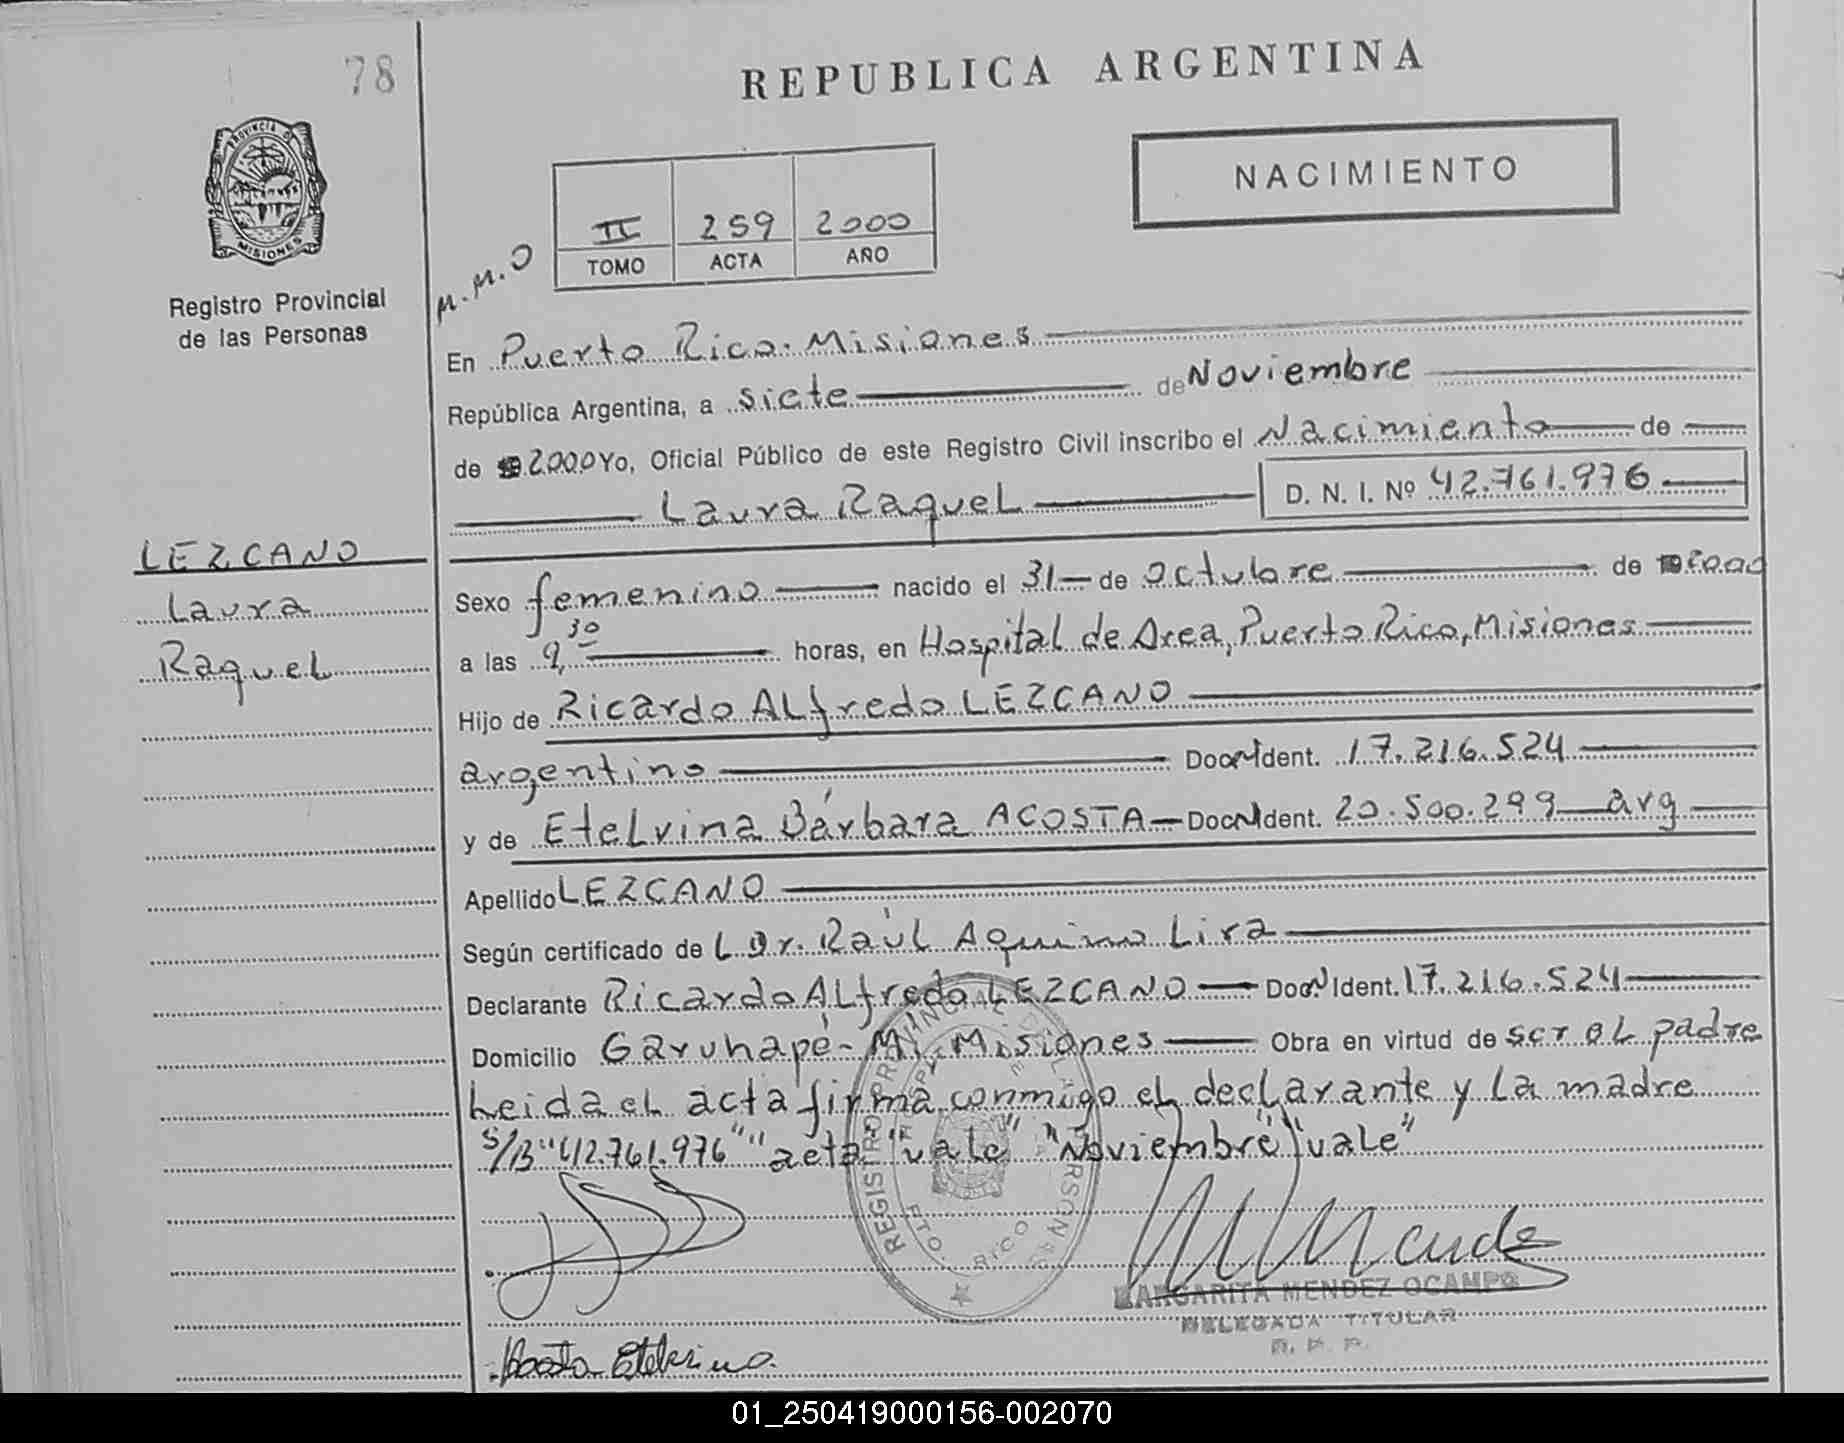 78
REPUBLICA ARGENTINA
NACIMIENTO
PROVINCIA DE
MISIONES
II 259 2000
TOMO ACTA AÑO
M.M.O
Registro Provincial
de las Personas
En Puerto Rico. Misiones
República Argentina, a siete de Noviembre
de 2000 Yo, Oficial Público de este Registro Civil inscribo el Nacimiento de
Laura Raquel D. N. I. Nº 42.761.976
LEZCANO
Laura
Raquel
Sexo femenino nacido el 31 de Octubre de 2000
a las 9,30 horas, en Hospital de Area, Puerto Rico, Misiones
Hijo de Ricardo ALfredo LEZCANO
argentino Doc. Ident. 17.216.524
y de EteLvina Bárbara ACOSTA Doc. Ident. 20.500.299 arg
Apellido LEZCANO
Según certificado de L Dr. Raúl Aquino Lira
Declarante Ricardo ALfredo LEZCANO Doc. Ident. 17.216.524
Domicilio Garuhapé - Mí. Misiones Obra en virtud de ser eL padre
Leida eL acta firma conmigo eL declarante y La madre
S/B "42.761.976" "acta" "vale" "Noviembre" "vale"
REGISTRO PROVINCIAL DE LAS PERSONAS
PTO. RICO
MARGARITA MENDEZ OCAMPO
DELEGADA TITULAR
R. P. P.
Acosta Etelvina.
01_250419000156-002070